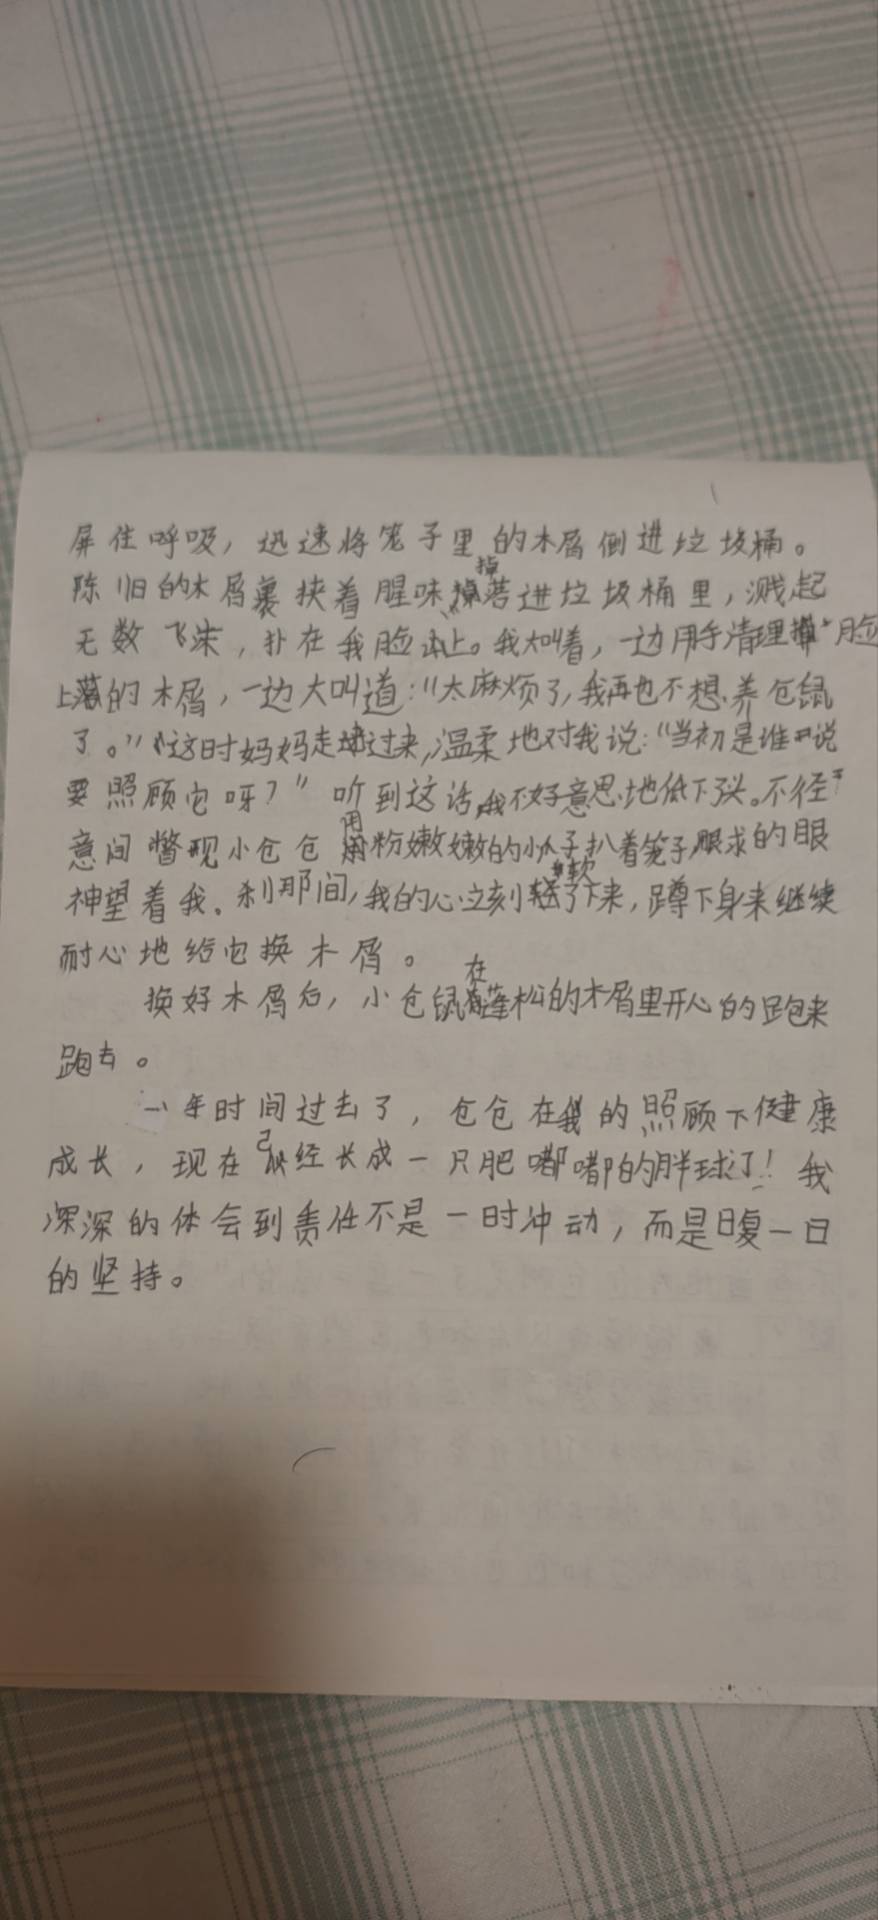 屏住呼吸，迅速将笼子里的木屑倒进垃圾桶。
陈旧的木屑裹挟着腥味掉落进垃圾桶里，溅起
无数飞沫，扑在我脸上。我大叫着，一边用手清理掉脸
上落的木屑，一边大叫道：“太麻烦了，我再也不想养仓鼠
了。”这时妈妈走过来，温柔地对我说：“当初是谁说
要照顾它呀？”听到这话，我不好意思地低下头。不径
意间瞥现小仓仓用粉嫩嫩的小爪子扒着笼子，眼求的眼
神望着我。刹那间，我的心立刻软了下来，蹲下身来继续
耐心地给它换木屑。
换好木屑后，小仓鼠在蓬松的木屑里开心的跑来
跑去。
一年时间过去了，仓仓在我的照顾下健康
成长，现在已经长成一只肥嘟嘟的胖球了！我
深深的体会到责任不是一时冲动，而是日复一日
的坚持。